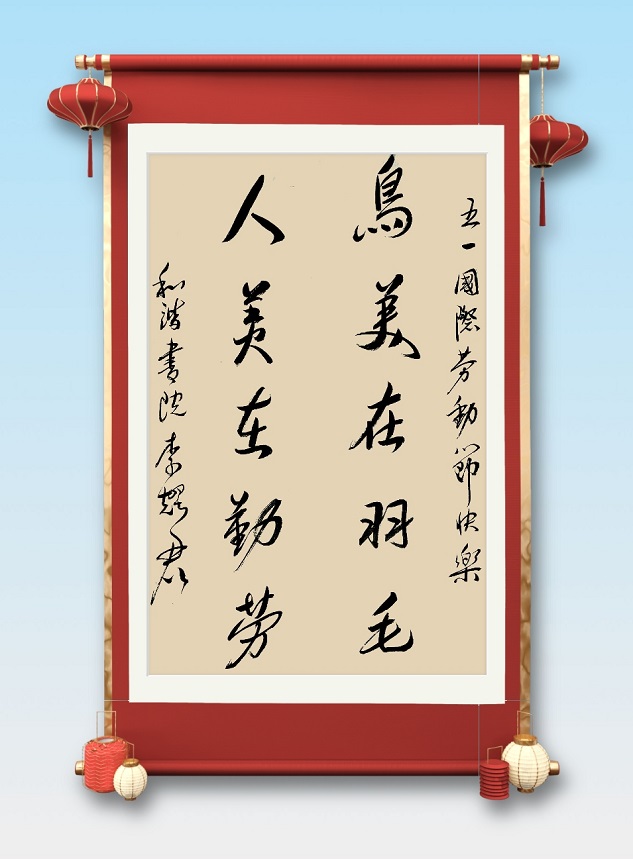 五一國際劳動節快樂
鳥美在羽毛
人美在勤劳
和谐書院李耀君